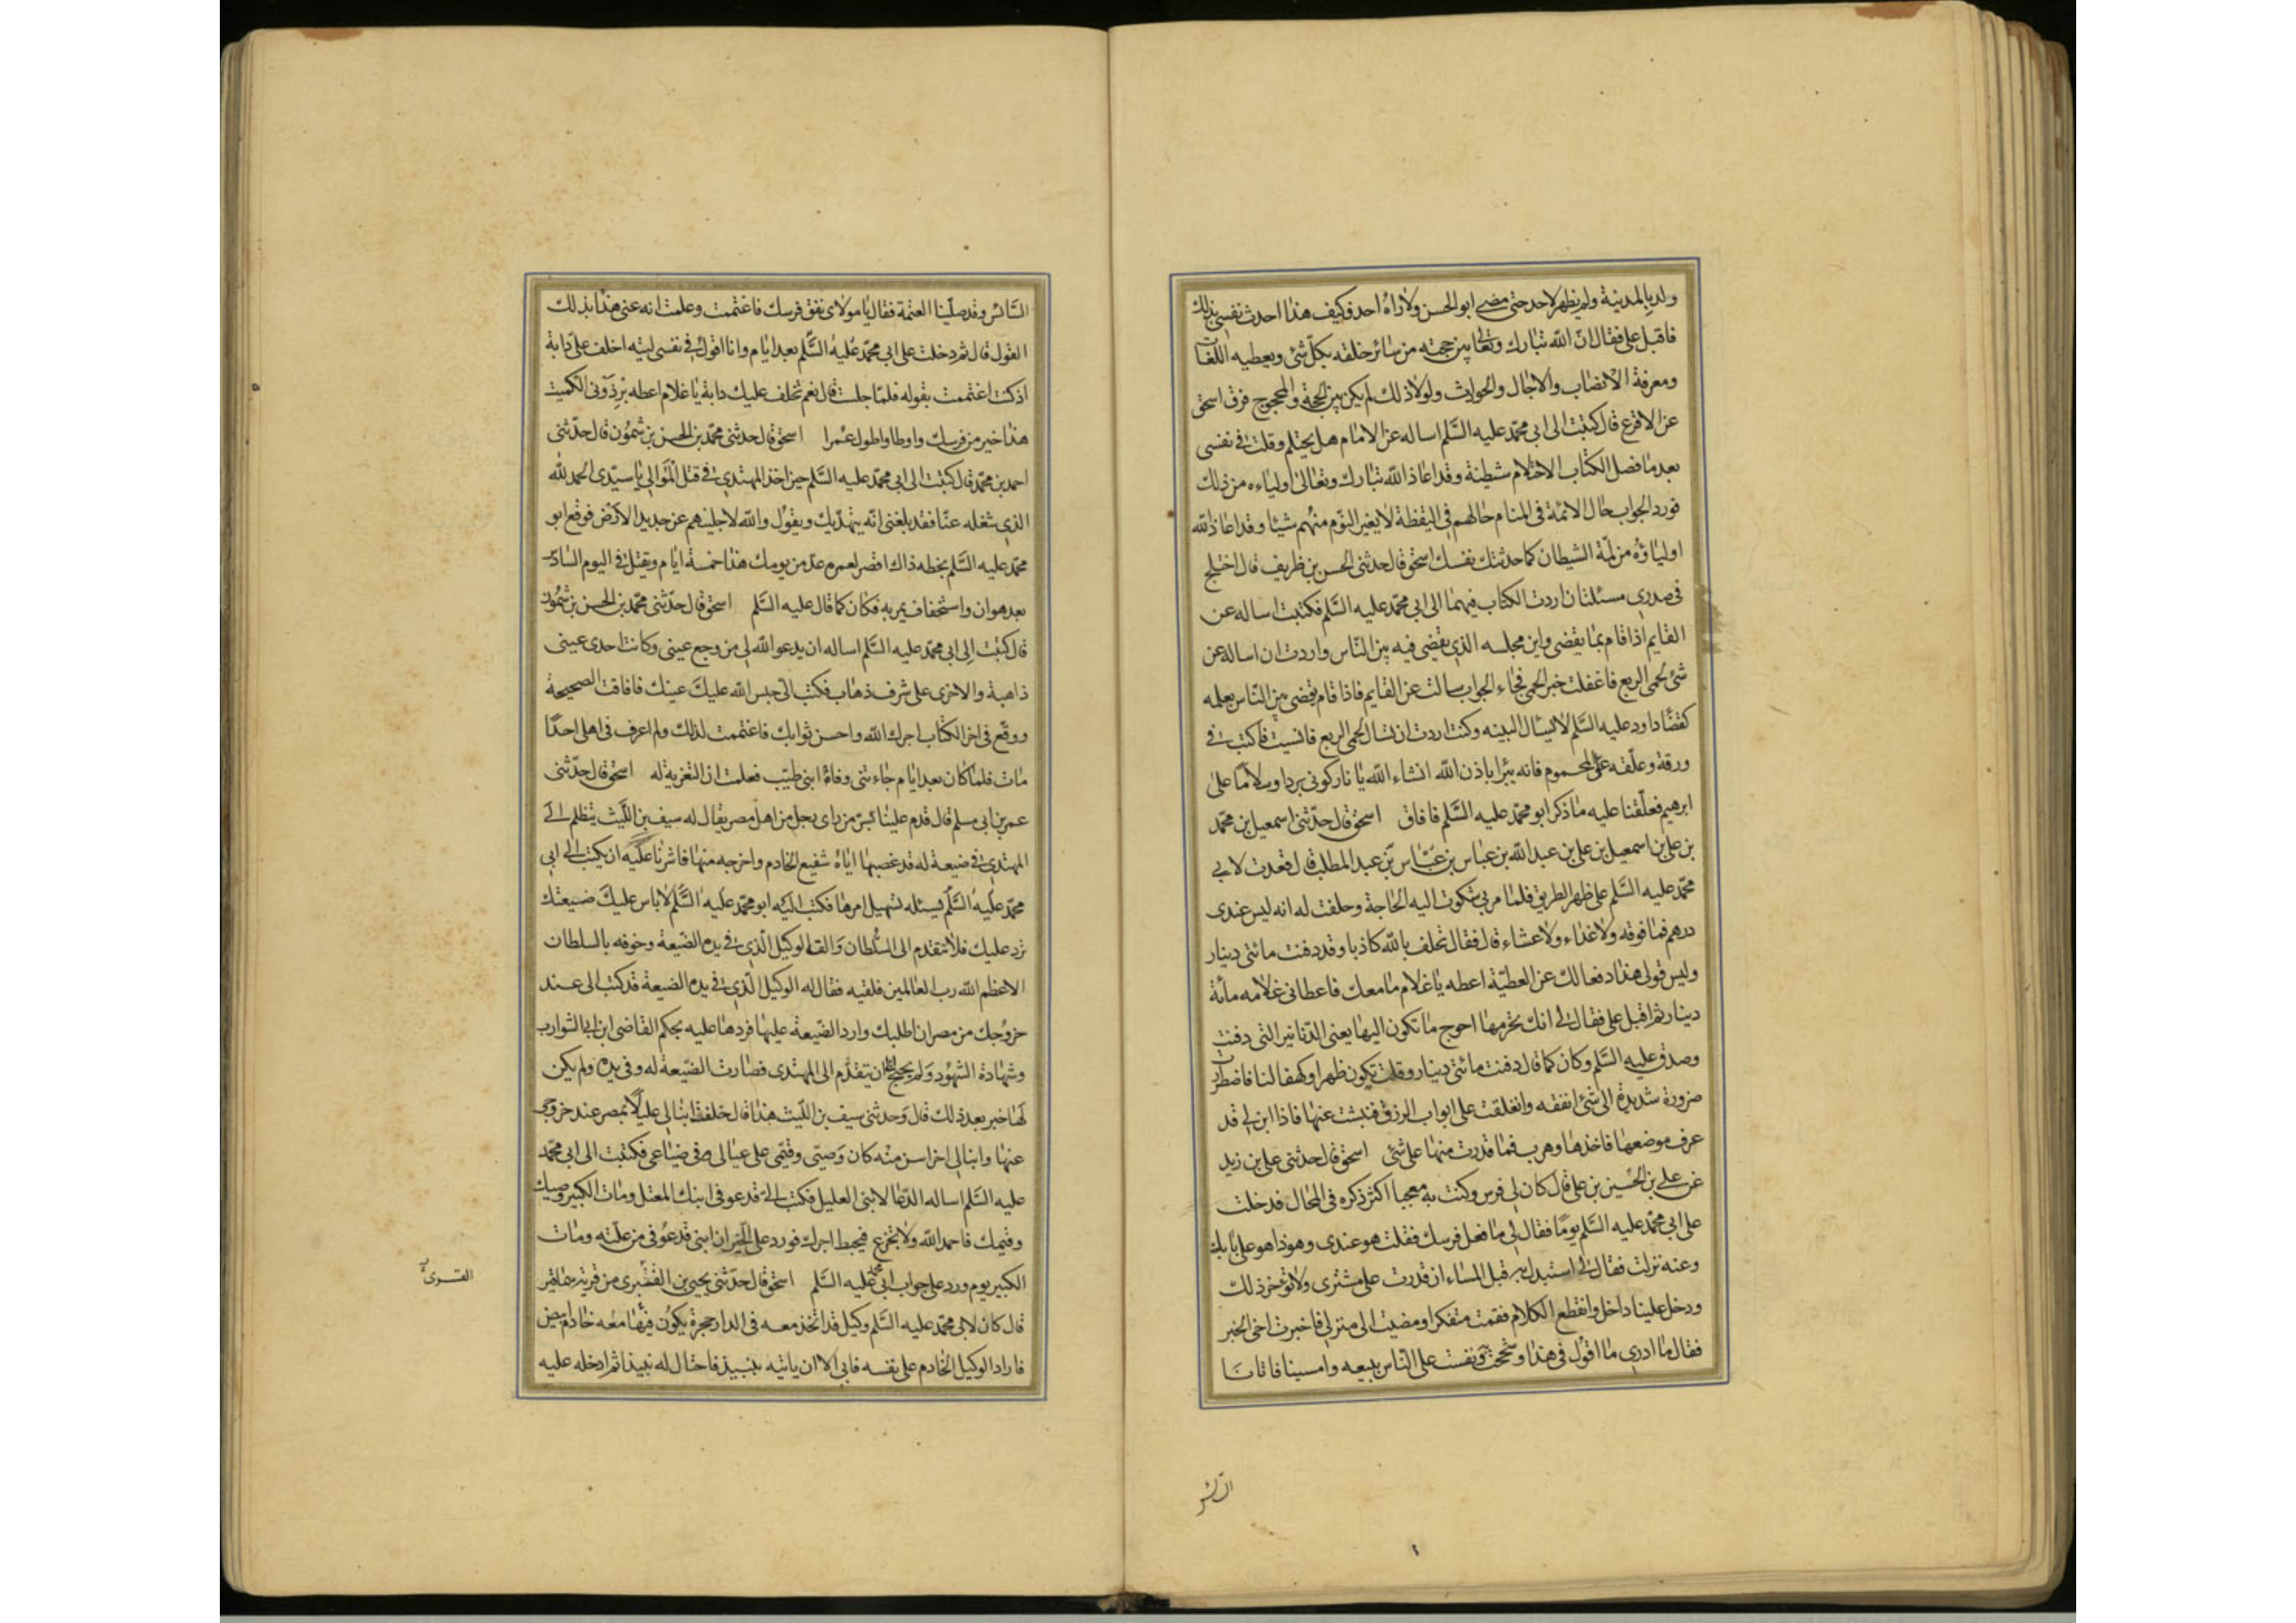 ولد بالمدينة ولم يظهر لاحد حتى مضى ابو الحسن ولا راه احد فكيف هذا احدث نفسى بذلك
فاقبل على فقال ان الله تبارك وتعالى بين حجته من سائر خلقه بكل شئ ويعطيه اللغات
ومعرفة الانساب والاجال والحوادث ولولا ذلك لم يكن بين الحجة والمحجوج فرق اسحق
عن الاقرع قال كتبت الى ابى محمد عليه السلم اساله عن الامام هل يحتلم وقلت فى نفسى
بعد ما فصل الكتاب الاحتلام شطينة وقد اعاذ الله تبارك وتعالى اولياءه من ذلك
فورد الجواب حال الائمة فى المنام حالهم فى اليقظة لا يغير النوم منهم شيئا وقد اعاذ الله
اولياؤه من لمة الشيطان كما حدثتك نفسك اسحق قال حدثنى الحسن بن ظريف قال اختلج
فى صدرى مسئلتان اردت الكتاب فيهما الى ابى محمد عليه السلم فكتبت اساله عن
القايم اذا قام بما يقضى واين مجلسه الذى يقضى فيه بين الناس واردت ان اساله عن
شئ لحمى الربع فاغفلت خبر الحمى فجاء الجواب سالت عن القايم فاذا قام يقضى بين الناس بعلمه
كقضا داود عليه السلم لا يسال البينه وكنت اردت ان تسال لحمى الربع فانسيت فاكتب فى
ورقة وعلقه على المحموم فانه يبرا باذن الله انشاء الله يا نار كونى بردا وسلاما على
ابرهيم فعلقنا عليه ما ذكر ابو محمد عليه السلم فافاق اسحق قال حدثنى اسمعيل بن محمد
بن على بن اسمعيل بن على بن عبد الله بن عباس بن عباس بن عبد المطلب قال قعدت لابى
محمد عليه السلم على ظهر الطريق فلما مر بى شكوت اليه الحاجة وحلفت له انه ليس عندى
درهم فما فوقه ولا غداء ولا عشاء قال فقال تحلف بالله كاذبا وقد دفنت مائتى دينار
وليس قولى هذا دفعا لك عن العطية اعطه يا غلام ما معك فاعطانى غلامه مائة
دينار ثم اقبل على فقال لى انك تحرمها احوج ما تكون اليها يعنى الدنانير التى دفنت
وصدق عليه السلم وكان كما قال دفنت مائتى دينار وقلت تكون ظهرا وكهفا لنا فاضطررت
ضرورة شديدة الى شئ انفقه وانغلقت على ابواب الرزق فنبشت عنها فاذا ابن لى قد
عرف موضعها فاخذها وهرب فما قدرت منها على شئ اسحق قال حدثنى على بن زيد
عن على بن الحسين بن على قال كان لى فرس وكنت به معجبا اكثر ذكره فى المحال فدخلت
على ابى محمد عليه السلم يوما فقال لى ما فعل فرسك فقلت هو عندى وهو ذا هو على بابك
وعنه نزلت فقال لى استبدل به قبل المساء ان قدرت على مشترى ولا تؤخر ذلك
ودخل علينا داخل وانقطع الكلام فقمت متفكرا ومضيت الى منزلى فاخبرت اخى الخبر
فقال ما ادرى ما اقول فى هذا وشححت ونفست على الناس ببيعه وامسينا فاتانا
السائس وقد صلينا العتمة فقال يا مولاى نفق فرسك فاغتممت وعلمت انه عنى هذا بذلك
القول قال ثم دخلت على ابى محمد عليه السلم بعد ايام وانا اقول فى نفسى ليته اخلف على دابة
اذ كنت اغتممت بقوله فلما جلست قال نعم نخلف عليك دابة يا غلام اعطه برذونى الكميت
هذا خير من فرسك واوطا واطول عمرا اسحق قال حدثنى محمد بن الحسن بن شمون قال حدثنى
احمد بن محمد قال كتبت الى ابى محمد عليه السلم حين اخذ المهتدى فى قتل الموالى يا سيدى الحمد لله
الذى شغله عنا فقد بلغنى انه يتهديك ويقول والله لاجلينهم عن جديد الارض فوقع ابو
محمد عليه السلم بخطه ذاك اقصر لعمره عد من يومك هذا خمسة ايام ويقتل فى اليوم السادس
بعد هوان واستخفاف يمر به فكان كما قال عليه السلم اسحق قال حدثنى محمد بن الحسن بن شمون
قال كتبت الى ابى محمد عليه السلم اساله ان يدعو الله لى من وجع عينى وكانت احدى عينى
ذاهبة والاخرى على شرف ذهاب فكتب الى حبس الله عليك عينك فافاقت الصحيحة
ووقع فى اخر الكتاب اجرك الله واحسن ثوابك فاغتممت لذلك ولم اعرف فى اهلى احدا
مات فلما كان بعد ايام جاءتنى وفاة ابنى طيب فعلمت ان التعزية له اسحق قال حدثنى
عمر بن ابى مسلم قال قدم علينا بسر من راى رجل من اهل مصر يقال له سيف بن الليث يتظلم الى
المهتدى فى ضيعة له قد غصبها اياه شفيع الخادم واخرجه منها فاشرنا عليه ان يكتب الى ابى
محمد عليه السلم يسئله تسهيل امرها فكتب اليه ابو محمد عليه السلم لا باس عليك ضيعتك
ترد عليك فلا تتقدم الى السلطان والق الوكيل الذى فى يده الضيعة وخوفه بالسلطان
الاعظم الله رب العالمين فلقيه فقال له الوكيل الذى فى يده الضيعة قد كتب الى عند
خروجك من مصر ان اطلبك وارد الضيعة عليها فردها عليه بحكم القاضى ابن ابى الشوارب
وشهادة الشهود ولم يحتج ان يتقدم الى المهتدى فصارت الضيعة له وفى يده ولم يكن
لها خبر بعد ذلك قال وحدثنى سيف بن الليث هذا قال خلفت ابنا لى عليلا بمصر عند خروجى
عنها وابنا لى اخر اسن منه كان وصيى وقيمى على عيالى وفى ضياعى فكتبت الى ابى محمد
عليه السلم اساله الدعا لابنى العليل فكتب الى قد عوفى ابنك المعتل ومات الكبير وصيك
وقيمك فاحمد الله ولا تجزع فيحبط اجرك فورد على الخبر ان ابنى قد عوفى من علته ومات
الكبير يوم ورد على جواب ابى محمد عليه السلم اسحق قال حدثنى يحيى بن القشيرى من قرية سماقير
قال كان لابى محمد عليه السلم وكيل قد اتخذ معه فى الدار حجرة يكون فيها معه خادم ابيض
فاراد الوكيل الخادم على نفسه فابى الا ان ياتيه بنبيذ فاحتال له نبيذا ثم ادخله عليه